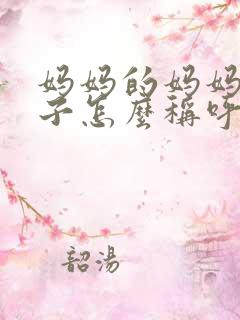 妈妈的妈妈
子怎麼稱呼
韶湯